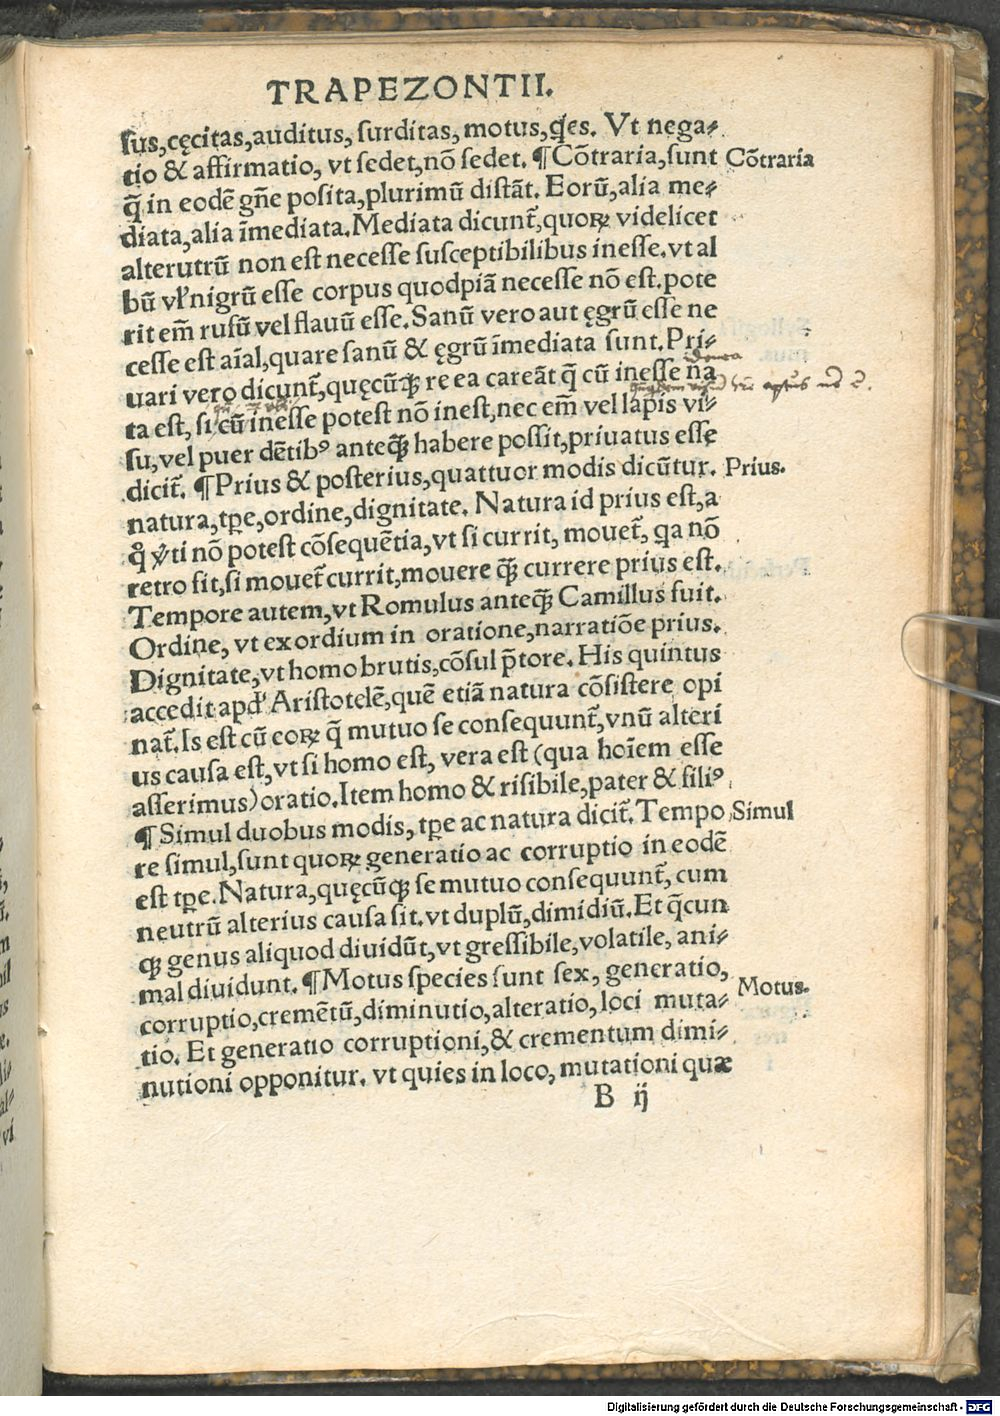 TRAPEZONTII.
sus,cęcitas,auditus, surditas, motus,q̃es. Vt nega-
tio & affirmatio, vt sedet,nõ sedet. ¶Cõtraria,sunt Cõtraria
q̃ in eodẽ gñe posita,plurimũ distãt. Eorũ,alia me-
diata,alia ĩmediata.Mediata dicunt̃,quoꝝ videlicet
alterutrũ non est necesse susceptibilibus inesse.vt al
bũ vl̃ nigrũ esse corpus quodpiã necesse nõ est.pote
rit em̃ rufũ vel flauũ esse.Sanũ vero aut ęgrũ esse ne
cesse est aĩal,quare sanũ & ęgrũ ĩmediata sunt.Pri-
idonea
uari vero dicunt̃,quęcũq̃ꝫ re ea careãt q̃ cũ inesse na
ta est, si cũ inesse potest nõ inest,nec em̃ vel lapis vi-
su,vel puer dẽtibꝰ anteq̃ꝫ habere possit,priuatus esse
dicit̃. ¶Prius & posterius,quattuor modis dicũtur. Prius.
natura,tp̃e,ordine,dignitate. Natura id prius est,a
q̃ ṽti nõ potest cõsequẽtia,vt si currit, mouet̃, qa nõ
retro fit,si mouet̃ currit,mouere q̃ꝫ currere prius est.
Tempore autem,vt Romulus anteq̃ꝫ Camillus fuit.
Ordine, vt exordium in oratione,narratiõe prius.
Dignitate,vt homo brutis,cõsul p̃tore. His quintus
accedit apd' Aristotelẽ,quẽ etiã natura cõsistere opi
nat̃.Is est cũ eoꝝ q̃ mutuo se consequunt̃,vnũ alteri
us causa est,vt si homo est, vera est (qua hoĩem esse
asserimus)oratio.Item homo & risibile,pater & filiꝰ
¶Simul duobus modis, tp̃e ac natura dicit̃.Tempo Simul
re simul,sunt quoꝝ generatio ac corruptio in eodẽ
est tp̃e.Natura,quęcũq̃ꝫ se mutuo consequunt̃, cum
neutrũ alterius causa sit.vt duplũ,dimidiũ.Et q̃cun
q̃ꝫ genus aliquod diuidũt,vt gressibile,volatile, ani-
mal diuidunt.¶Motus species sunt sex, generatio, Motus.
corruptio,cremẽtũ,diminutio,alteratio,loci muta-
tio. Et generatio corruptioni,& crementum dimi-
nutioni opponitur. vt quies in loco, mutationi quæ
B ij
Digitalisierung gefördert durch die Deutsche Forschungsgemeinschaft - DFG